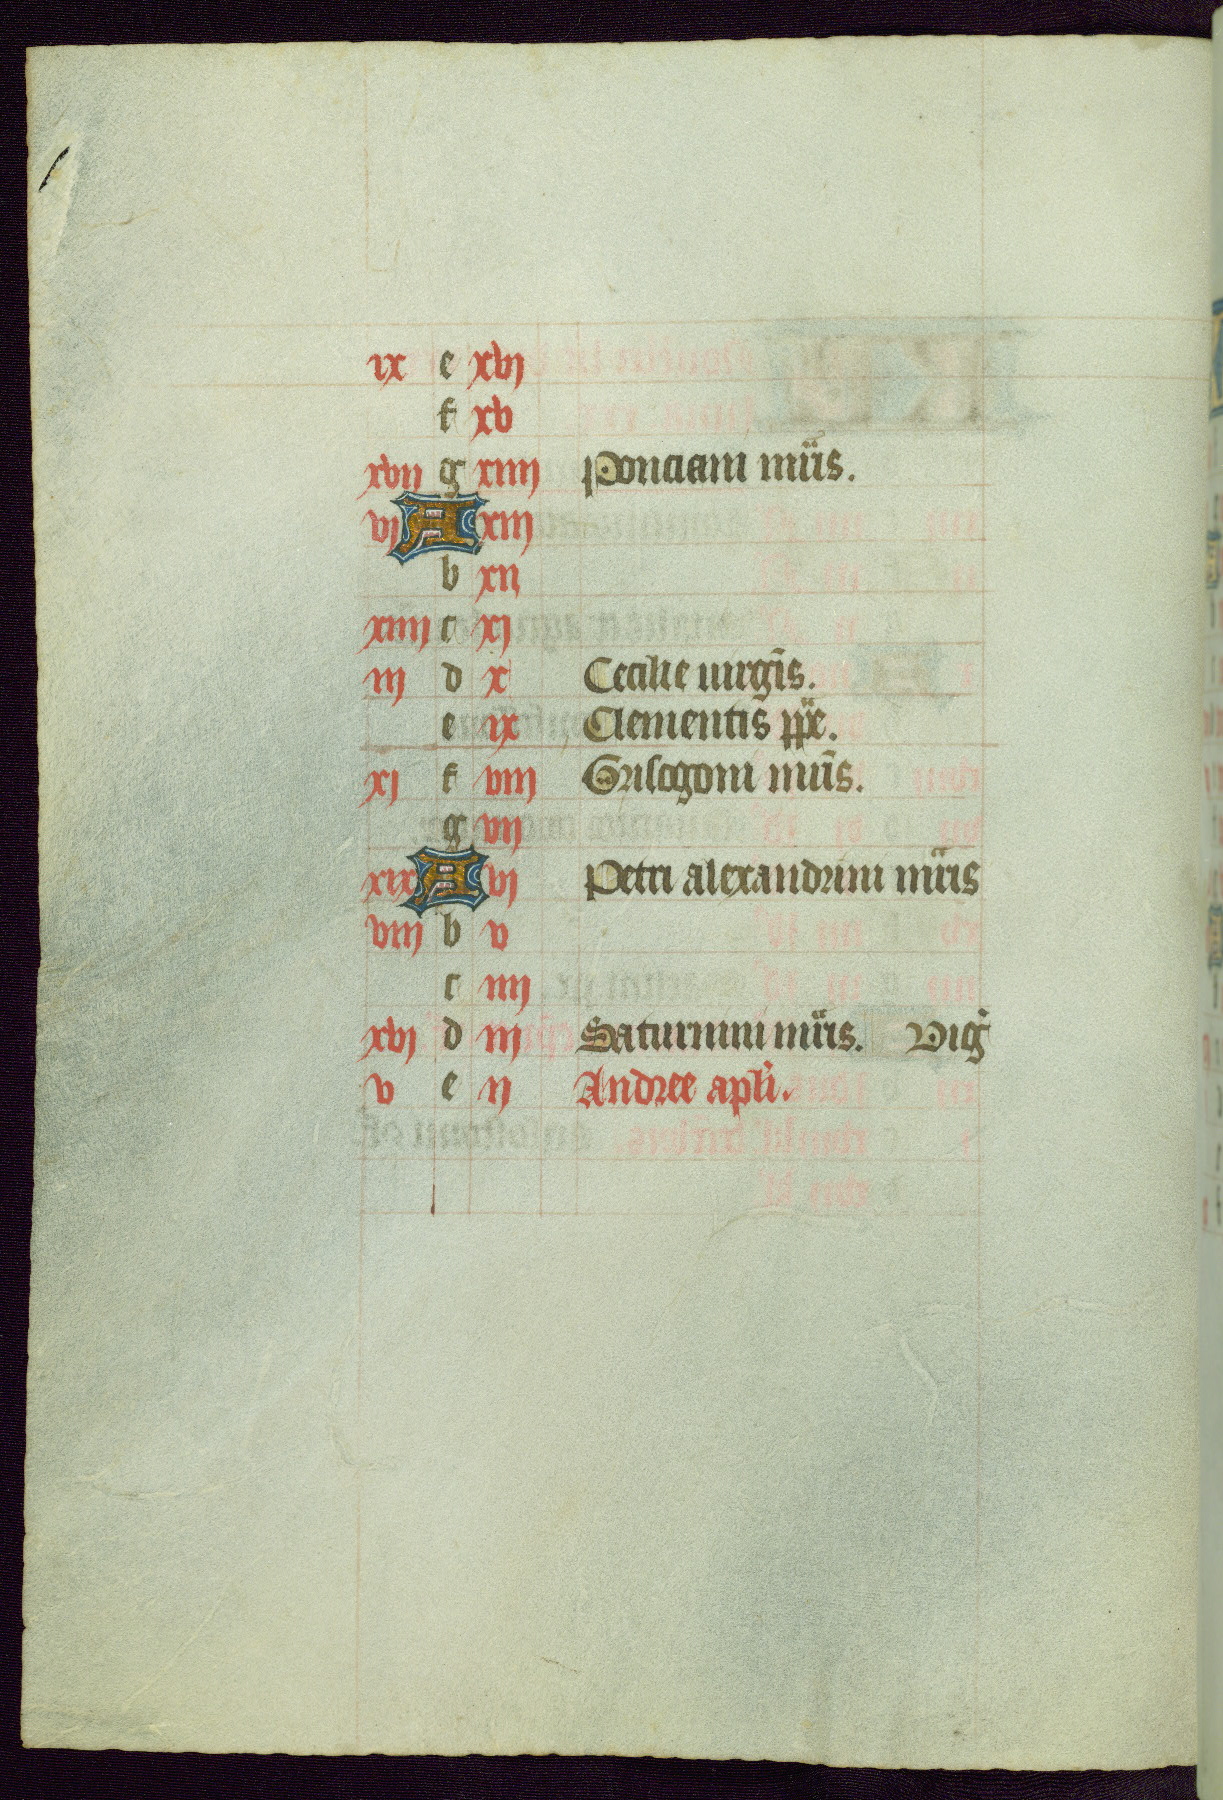 ix e xvj
f xv
xvij g xiiij Ponciani mr̃is.
vj A xiij
b xij
xiiij c xj
iij d x Cecilie uirgĩs.
e ix Clementis pp̃e.
xj f viij Grisogoni mr̃is.
g vij
xix A vj Petri alexandrini mr̃is
viij b v
c iiij
xvj d iij Saturnini mr̃is. Vig̃
v e ij Andree apl̃i.